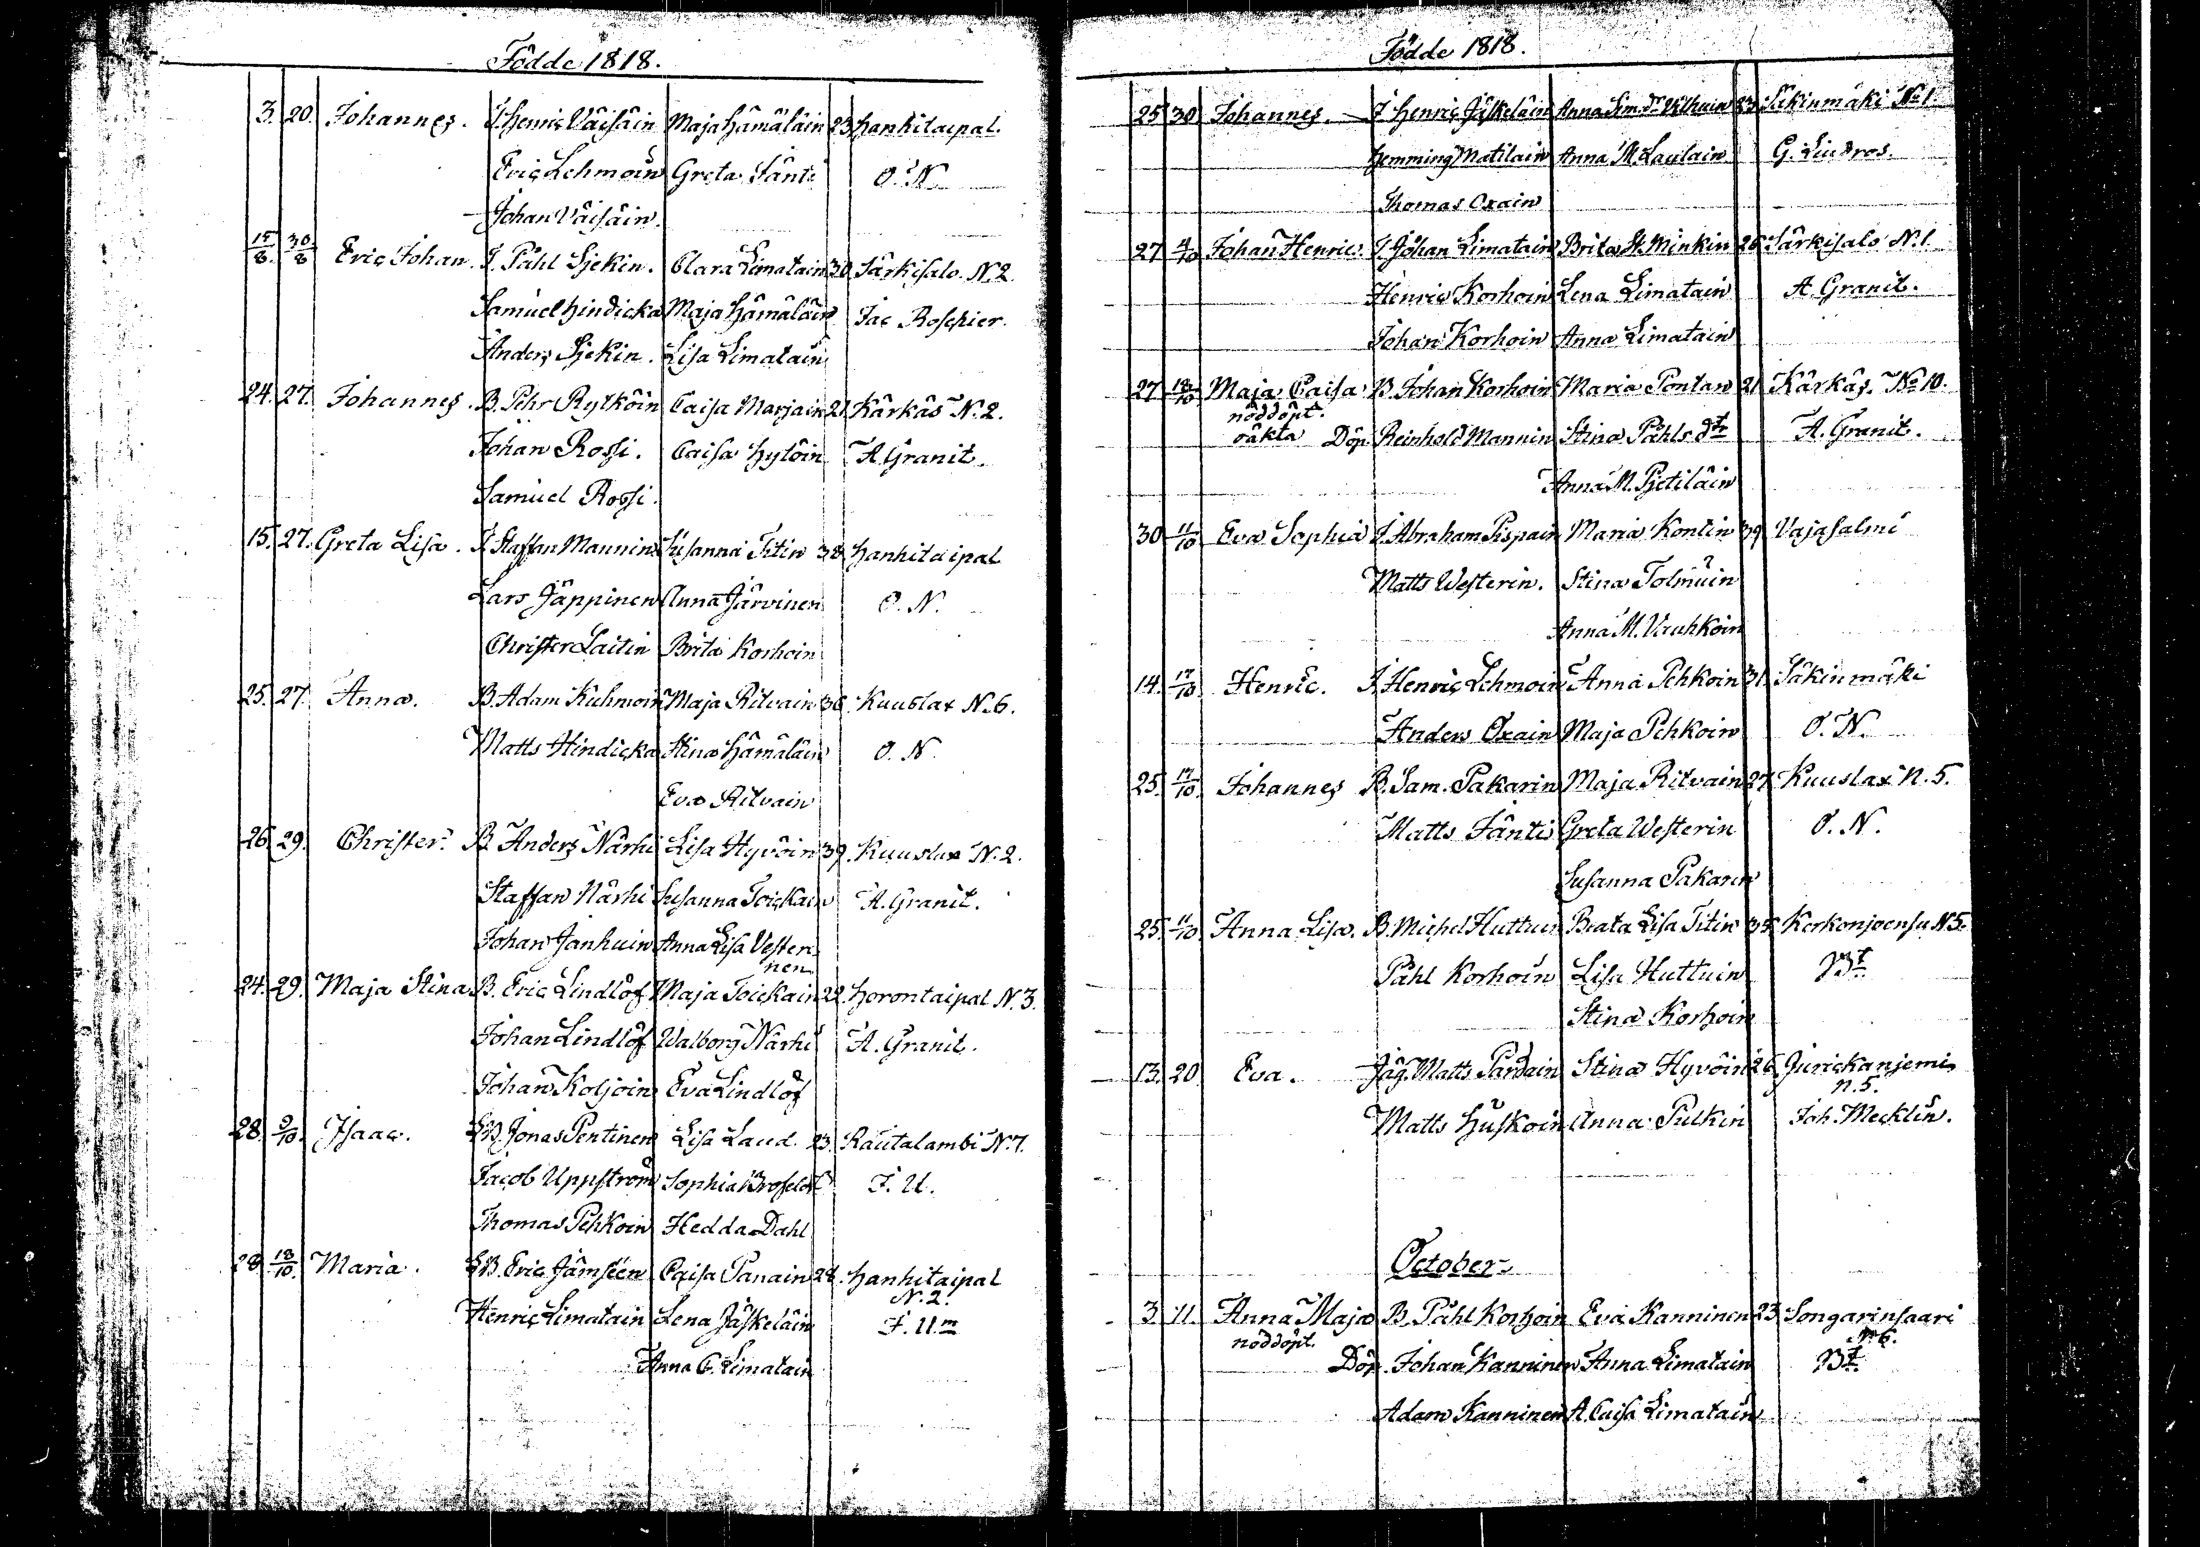 Födde 1818.
3. 20. Johannes. I. Henric Väisäin Maja Hämäläin 23 Hankitaipal.
Eric Lehmoin Greta Jänti O. N.
Johan Väisäin.
15/8. 30/8 Eric Johan. I. Påhl Sjekin. Clara Limatain 30 Särkisalo. N. 2.
Samuel Hindicka Maja Hämäläin Jac Roschier.
Anders Sjekin. Lisa Limatain
24. 27. Johannes. B. Pehr Rytköin Caisa Marjain 21 Kärkäs N. 2.
Johan Rossi. Caisa Hytöin A. Granit.
Samuel Rossi.
15. 27. Greta Lisa. I. Staffan Mannin Susanna Titin 38 Hanhitaipal
Lars Jäppinen Anna Järvinen O. N.
Christer Laitin Brita Korhoin
25. 27. Anna. B. Adam Kuhmoin Maja Ritvain 36 Kuuslax N. 6.
Matts Hindicka Stina Hämäläin O. N.
Eva Ritvain
26 29. Christer. B. Anders Närhi Lisa Hyvöin 39. Kuuslax N. 2.
Staffan Närhi Susanna Toickain A. Granit.
Johan Janhuin Anna Lisa Vesteri
nen
24. 29. Maja Stina B. Eric Lindlöf Maja Toickain 22. Horontaipal N. 3.
Johan Lindlöf Walborg Närhi A. Granit.
Johan Koljoin Eva Lindlöf
28. 9/10. Isaac. Jonas Pentinen Lisa Laud. 23. Rautalambi N. 7.
Jacob Uppström Sophia Brofeldt J. U.
Thomas Pehkoin Hedda Dahl
28 18/10. Maria. Eric Jämsén Caisa Panain 24. Hanhitaipal
N. 2.
Henric Limatain Lena Jäskeläin J. U.m
Anna C. Limatain
Födde 1818.
25 30 Johannes. I Henric Jäskeläin Anna Sim.dr Vilhuin 23. Säkinmäki No 1
Hemming Matilain Anna M. Laulain G. Lindros.
Thomas Oxain
27 4/10 Johan Henric. I Johan Limatain Brita St. Minkin 26 Särkisalo N. 1.
Henric Korhoin Lena Limatain A. Granit.
Johan Korhoin Anna Limatain
27 18/10 Maja Caisa B. Johan Korhoin Maria Pontan 21 Kärkäs. No 10.
nöddöpt.
oäkta Döp. Reinhold Mannin Stina Påhls dtr A. Granit.
Anna M. Pjetiläin
30 11/10 Eva Sophia I. Abraham Pispain Maria Kontin 39 Vajasalmi
Matts Westerin. Stina Tolmuin
Anna M. Vauhkoin
14. 17/10. Henric. I. Henric Lehmoin Anna Pehkoin 31 Säkinmäki
Anders Oxain Maja Pehkoin O. N.
25. 17/10. Johannes B. Sam. Pakarin Maja Ritvain 27 Kuuslax N. 5.
Matts Jänti Greta Westerin O. N.
Susanna Pakarin
25. 11/10 Anna Lisa. B. Michel Huttuin Beata Lisa Titin 35 Kerkonjoensu N 5.
Påhl Korhoin Lisa Huttuin Bt.
Stina Korhoin
13. 20 Eva. Jäg. Matts Pardain Stina Hyvöin 26 Jurickanjemi
N. 5.
Matts Huskoin Anna Pulkin Joh. Mecklin.
October
3 11. Anna Maja B. Påhl Korhoin Eva Kanninen 23 Songarinsaari
nöddöpt. N 6.
Döp. Johan Kanninen Anna Limatain Bt.
Adam Kanninen A. Caisa Limatain